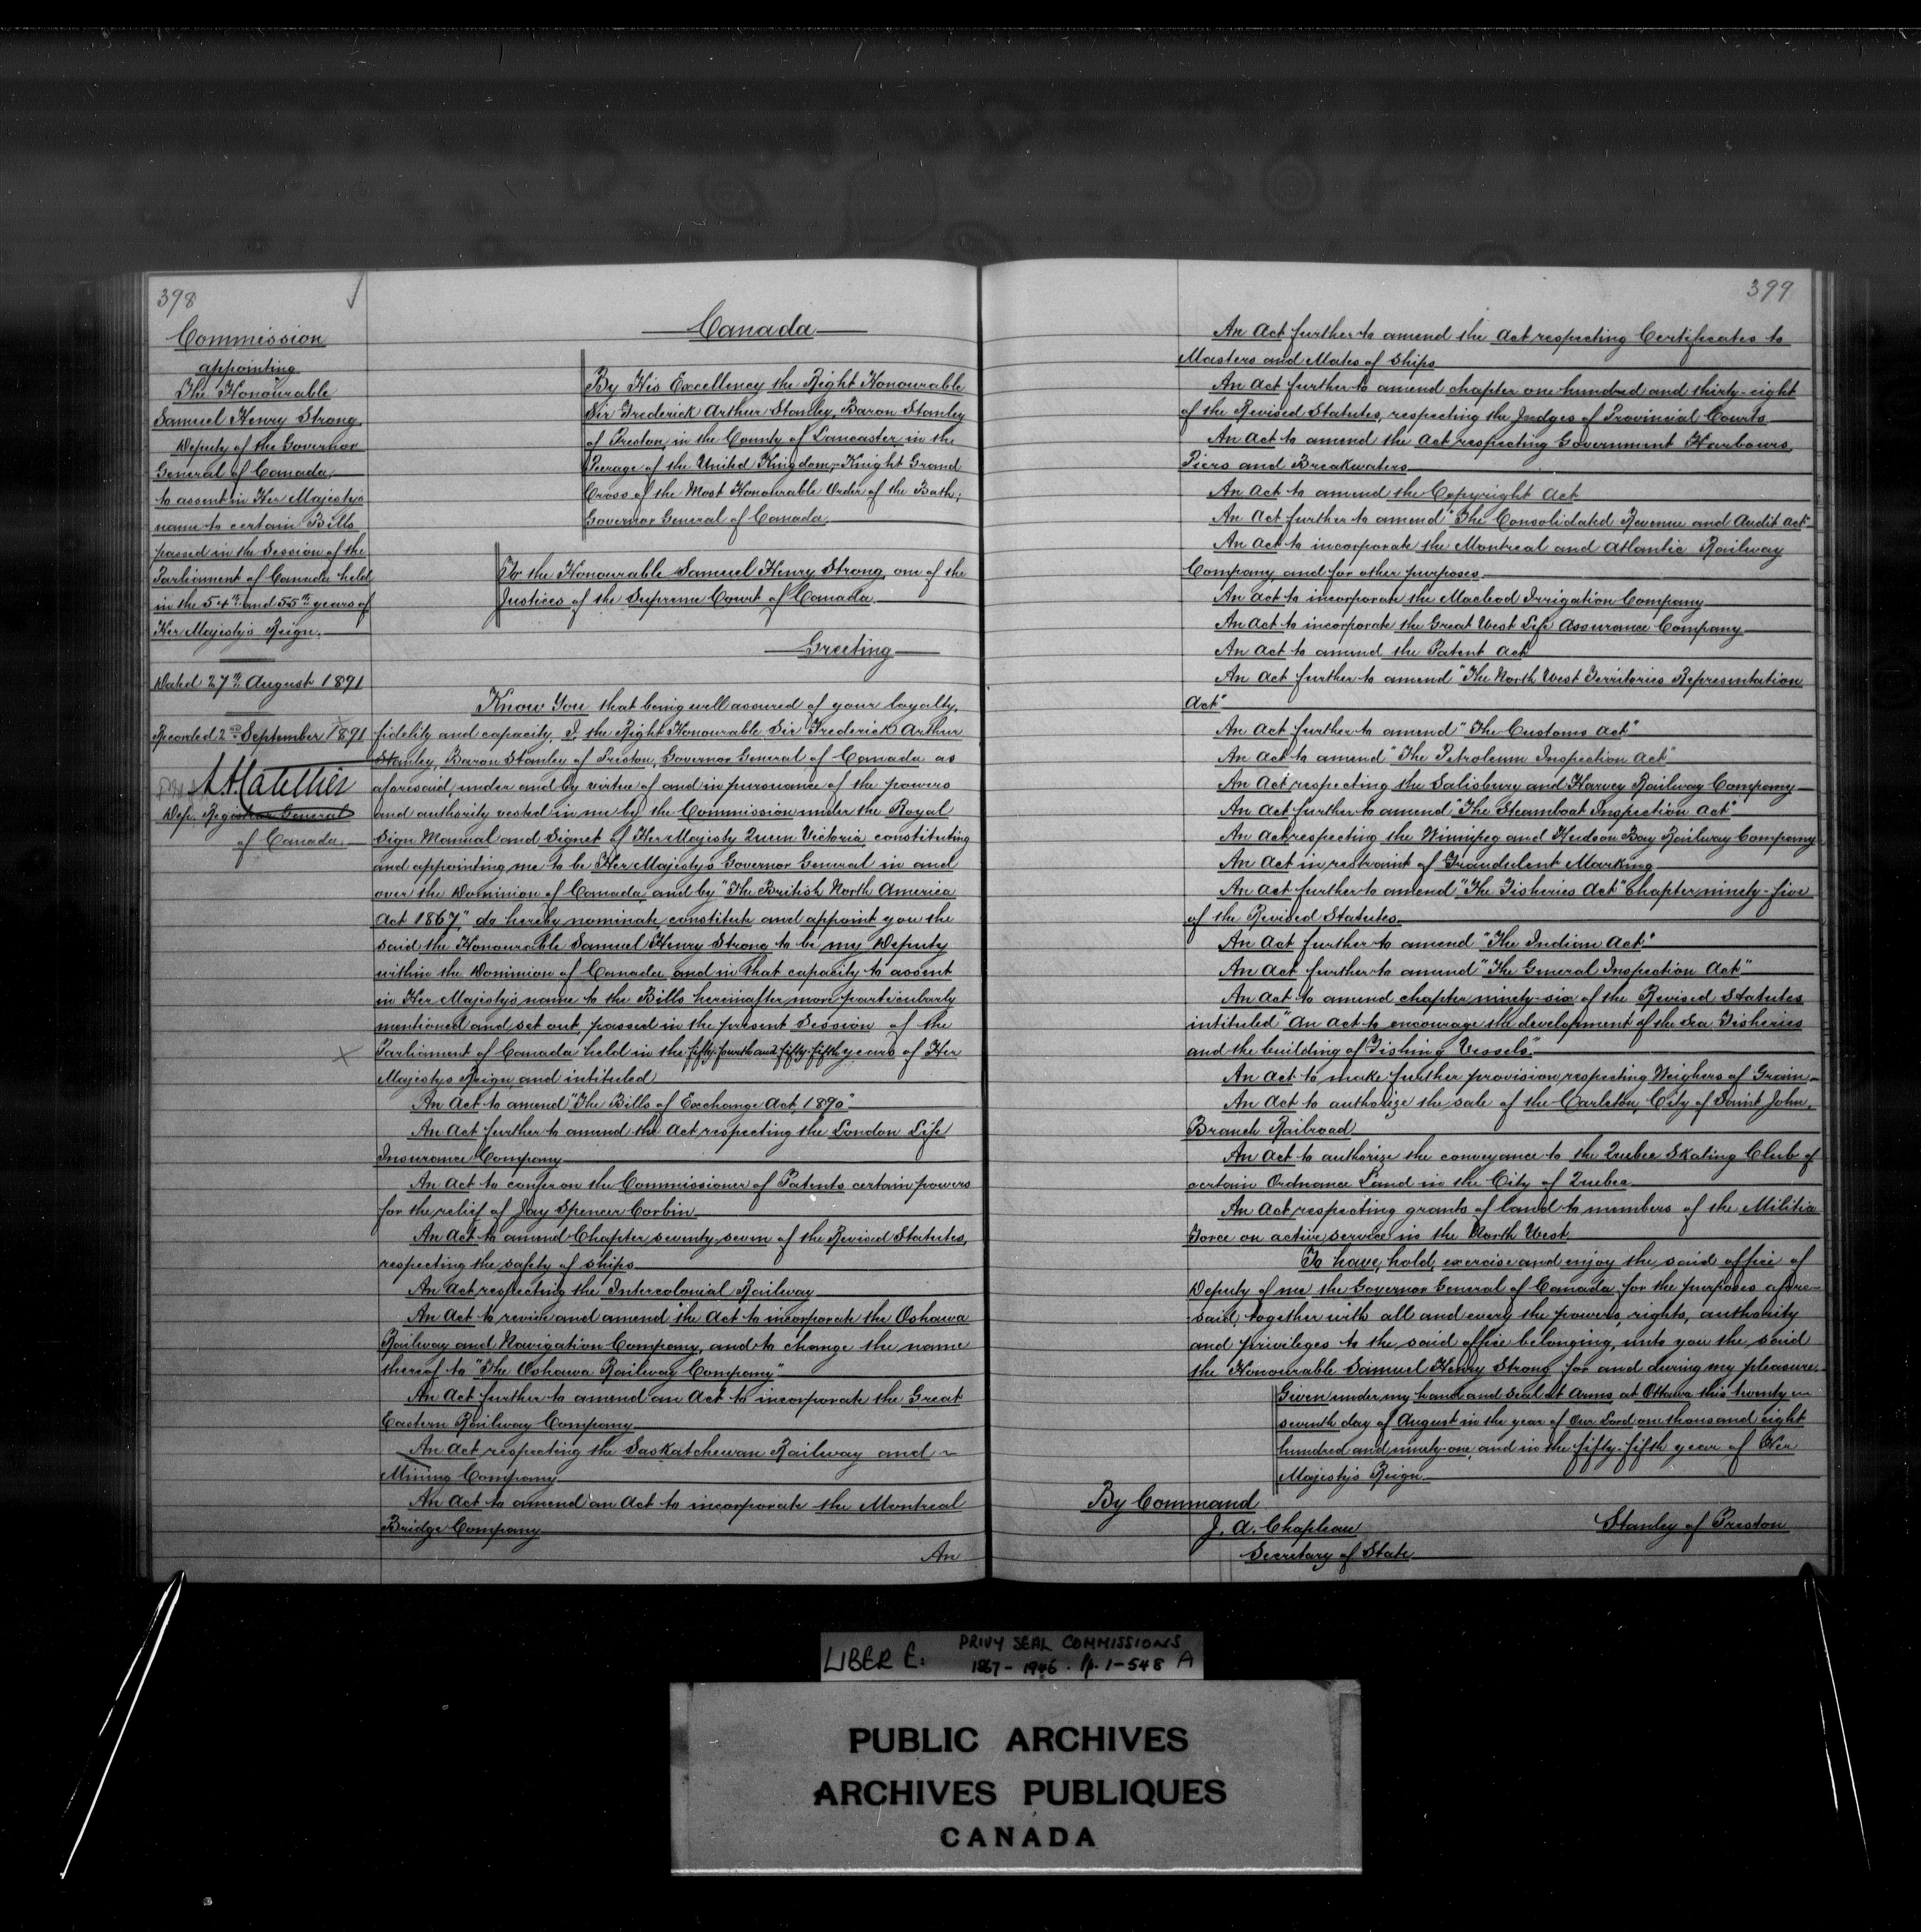 398
Commission
appointing
The Honourable
Samuel Henry Strong,
Deputy of the Governor
General of Canada,
to assent in Her Majesty's
name to certain Bills
passed in the Session of the
Parliament of Canada held
in the 54th and 55th years of
Her Majesty's Reign.
Dated 27th August 1891
Recorded 2nd September 1891
Dep. Registrar General
of Canada.
Canada
By His Excellency the Right Honourable
Sir Frederick Arthur Stanley, Baron Stanley
of Preston, in the County of Lancaster in the
Peerage of the United Kingdom, Knight Grand
Cross of the Most Honourable Order of the Bath;
Governor General of Canada.
To the Honourable Samuel Henry Strong, one of the
Justices of the Supreme Court of Canada.
Greeting
Know You that being well assured of your loyalty,
fidelity and capacity, I, the Right Honourable Sir Frederick Arthur
Stanley, Baron Stanley of Preston, Governor General of Canada as
aforesaid, under and by virtue of and in pursuance of the powers
and authority vested in me by the Commission under the Royal
Sign Manual and Signet of Her Majesty Queen Victoria, constituting
and appointing me to be Her Majesty's Governor General in and
over the Dominion of Canada, and by "The British North America
Act 1867," do hereby nominate, constitute and appoint you the
said the Honourable Samuel Henry Strong to be my Deputy
within the Dominion of Canada, and in that capacity to assent
in Her Majesty's name to the Bills hereinafter more particularly
mentioned and set out, passed in the present Session of the
Parliament of Canada held in the fifty-fourth and fifty-fifth years of Her
Majesty's Reign, and intituled
An Act to amend "The Bills of Exchange Act, 1890"
An Act further to amend the Act respecting the London Life
Insurance Company
An Act to confer on the Commissioner of Patents certain powers
for the relief of Jay Spencer Corbin
An Act to amend Chapter seventy-seven of the Revised Statutes,
respecting the safety of ships
An Act respecting the Intercolonial Railway
An Act to revive and amend the Act to incorporate the Oshawa
Railway and Navigation Company, and to change the name
thereof to "The Oshawa Railway Company"
An Act further to amend an Act to incorporate the Great
Eastern Railway Company
An Act respecting the Saskatchewan Railway and
Mining Company
An Act to amend an Act to incorporate the Montreal
Bridge Company
An
399
An Act further to amend the Act respecting Certificates to
Masters and Mates of Ships
An Act further to amend chapter one hundred and thirty-eight
of the Revised Statutes, respecting the Judges of Provincial Courts
An Act to amend the Act respecting Government Harbours,
Piers and Breakwaters
An Act to amend the Copyright Act
An Act further to amend "The Consolidated Revenue and Audit Act"
An Act to incorporate the Montreal and Atlantic Railway
Company, and for other purposes.
An Act to incorporate the Macleod Irrigation Company
An Act to incorporate the Great West Life Assurance Company
An Act to amend the Patent Act
An Act further to amend "The North West Territories Representation
Act"
An Act further to amend "The Customs Act"
An Act to amend "The Petroleum Inspection Act"
An Act respecting the Salisbury and Harvey Railway Company
An Act further to amend "The Steamboat Inspection Act"
An Act respecting the Winnipeg and Hudson Bay Railway Company
An Act in restraint of Fraudulent Marking
An Act further to amend "The Fisheries Act" Chapter ninety-five
of the Revised Statutes.
An Act further to amend "The Indian Act"
An Act further to amend "The General Inspection Act"
An Act to amend chapter ninety-six of the Revised Statutes
intituled "An Act to encourage the development of the Sea Fisheries
and the building of Fishing Vessels."
An Act to make further provision respecting Weighers of Grain
An Act to authorize the sale of the Carleton, City of Saint John,
Branch Railroad
An Act to authorize the conveyance to the Quebec Skating Club of
certain Ordnance Land in the City of Quebec
An Act respecting grants of land to members of the Militia
Force on active service in the North West
To have, hold, exercise and enjoy the said office of
Deputy of me the Governor General of Canada, for the purposes afore-
said, together with all and every the powers, rights, authority
and privileges to the said office belonging, unto you the said
the Honourable Samuel Henry Strong for and during my pleasure.
Given under my hand and Seal at Arms, at Ottawa this twenty
seventh day of August in the year of Our Lord one thousand eight
hundred and ninety-one, and in the fifty-fifth year of Her
Majesty's Reign.
By Command
J. A. Chapleau
Secretary of State
Stanley of Preston
LIBER E.
PRIVY SEAL COMMISSIONS
1867-1946. Pp. 1-548 A
PUBLIC ARCHIVES
ARCHIVES PUBLIQUES
CANADA